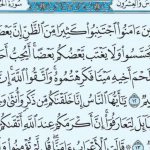 والعشرون
ءَامَنُوا۟ ٱجْتَنِبُوا۟ كَثِيرًا مِّنَ ٱلظَّنِّ إِنَّ بَعْضَ
تَجَسَّسُوا۟ وَلَا يَغْتَب بَّعْضُكُم بَعْضًا أَيُحِبُّ
لَحْمَ أَخِيهِ مَيْتًا فَكَرِهْتُمُوهُ وَٱتَّقُوا۟ ٱللَّهَ
١٢ يَٰٓأَيُّهَا ٱلنَّاسُ إِنَّا خَلَقْنَٰكُم مِّن ذَكَرٍ وَأُنثَىٰ
لِتَعَارَفُوٓا۟ إِنَّ أَكْرَمَكُمْ عِندَ ٱللَّهِ أَتْقَىٰكُمْ
قَالَتِ ٱلْأَعْرَابُ